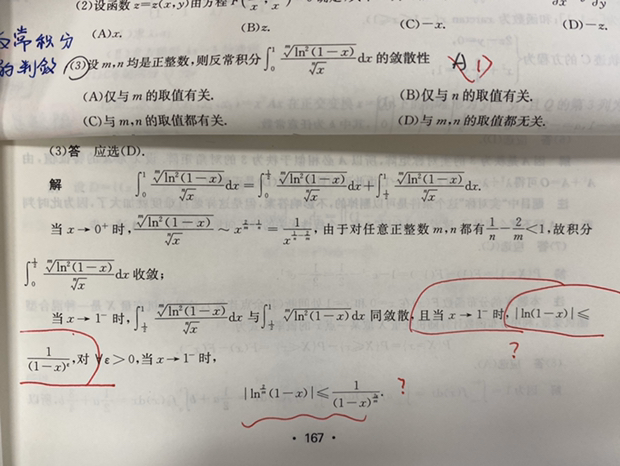 (2)设函数 z=z(x,y)由方程 F(
(A)x. (B)z. (C)−x. (D)−z.
反常积分
的判敛
(3)设 m,n 均是正整数,则反常积分∫₀¹ ᵐ√ln²(1−x)/ⁿ√x dx 的敛散性 A (1)
(A)仅与 m 的取值有关. (B)仅与 n 的取值有关.
(C)与 m,n 的取值都有关. (D)与 m,n 的取值都无关.
(3)答 应选(D).
解 ∫₀¹ ᵐ√ln²(1−x)/ⁿ√x dx=∫₀^(1/2) ᵐ√ln²(1−x)/ⁿ√x dx+∫_(1/2)^1 ᵐ√ln²(1−x)/ⁿ√x dx.
当 x→0⁺ 时, ᵐ√ln²(1−x)/ⁿ√x ~ x^(2/m−1/n) = 1/x^(1/n−2/m),由于对任意正整数 m,n 都有 1/n−2/m<1,故积分
∫₀^(1/2) ᵐ√ln²(1−x)/ⁿ√x dx 收敛;
当 x→1⁻ 时,∫_(1/2)^1 ᵐ√ln²(1−x)/ⁿ√x dx 与∫_(1/2)^1 ᵐ√ln²(1−x)dx 同敛散,且当 x→1⁻ 时,|ln(1−x)|≤
?
1/(1−x)^ε,对∀ε>0,当 x→1⁻ 时,
|ln^(2/m)(1−x)|≤1/(1−x)^(2ε/m). ?
·167·